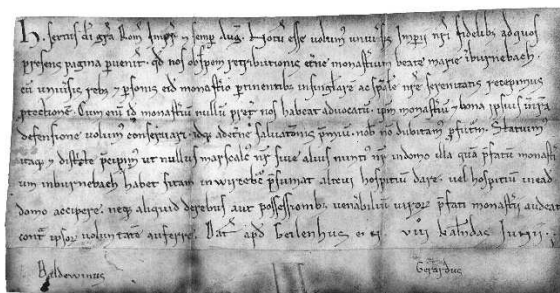 di gra Rom Impr & semp Aug. Notu esse volum univsis Imperii nri fidelib; ad quos
presens pagina pvenit. qd nos ob spem retributionis etne monastium beate marie
cu univsis reb; & psonis eid monastio ptinentib; in singulare ac spale nre serenitatis recepimus
ptectione. Cum eni id monastiu nullu pret nos habeat advocatu ipm monastiu & bona ipsius in nra
defensione volum conservari. idq; salvatonis pmiu nob no dubitam pfutu. Statuim
itaq; & districte pcipim ut nullus marscalc nr sive alius nunti nr in domo illa qua pfatu monasti
um in burnebach habet sitam in psumat alicui hospitiu dare. vel hospitiu in ead
domo accipere. neq; aliquid de rebus aut possessionib; venabiliu viror pfati monastii audeat
cont ipsor voluntate auferre. Dat apd Geilenhus viii kalendas Iunii.
Baldewinus Gerardus